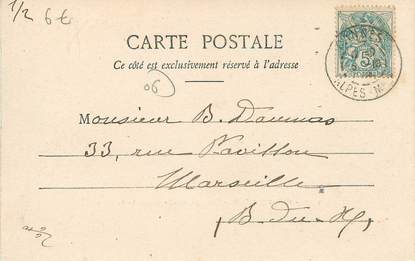 1/2 6€
CARTE POSTALE
Ce côté est exclusivement réservé à l'adresse
06
Monsieur B. Daumas
33, rue Pavillon
Marseille
B.-du-Rh.
5
ALPES-M